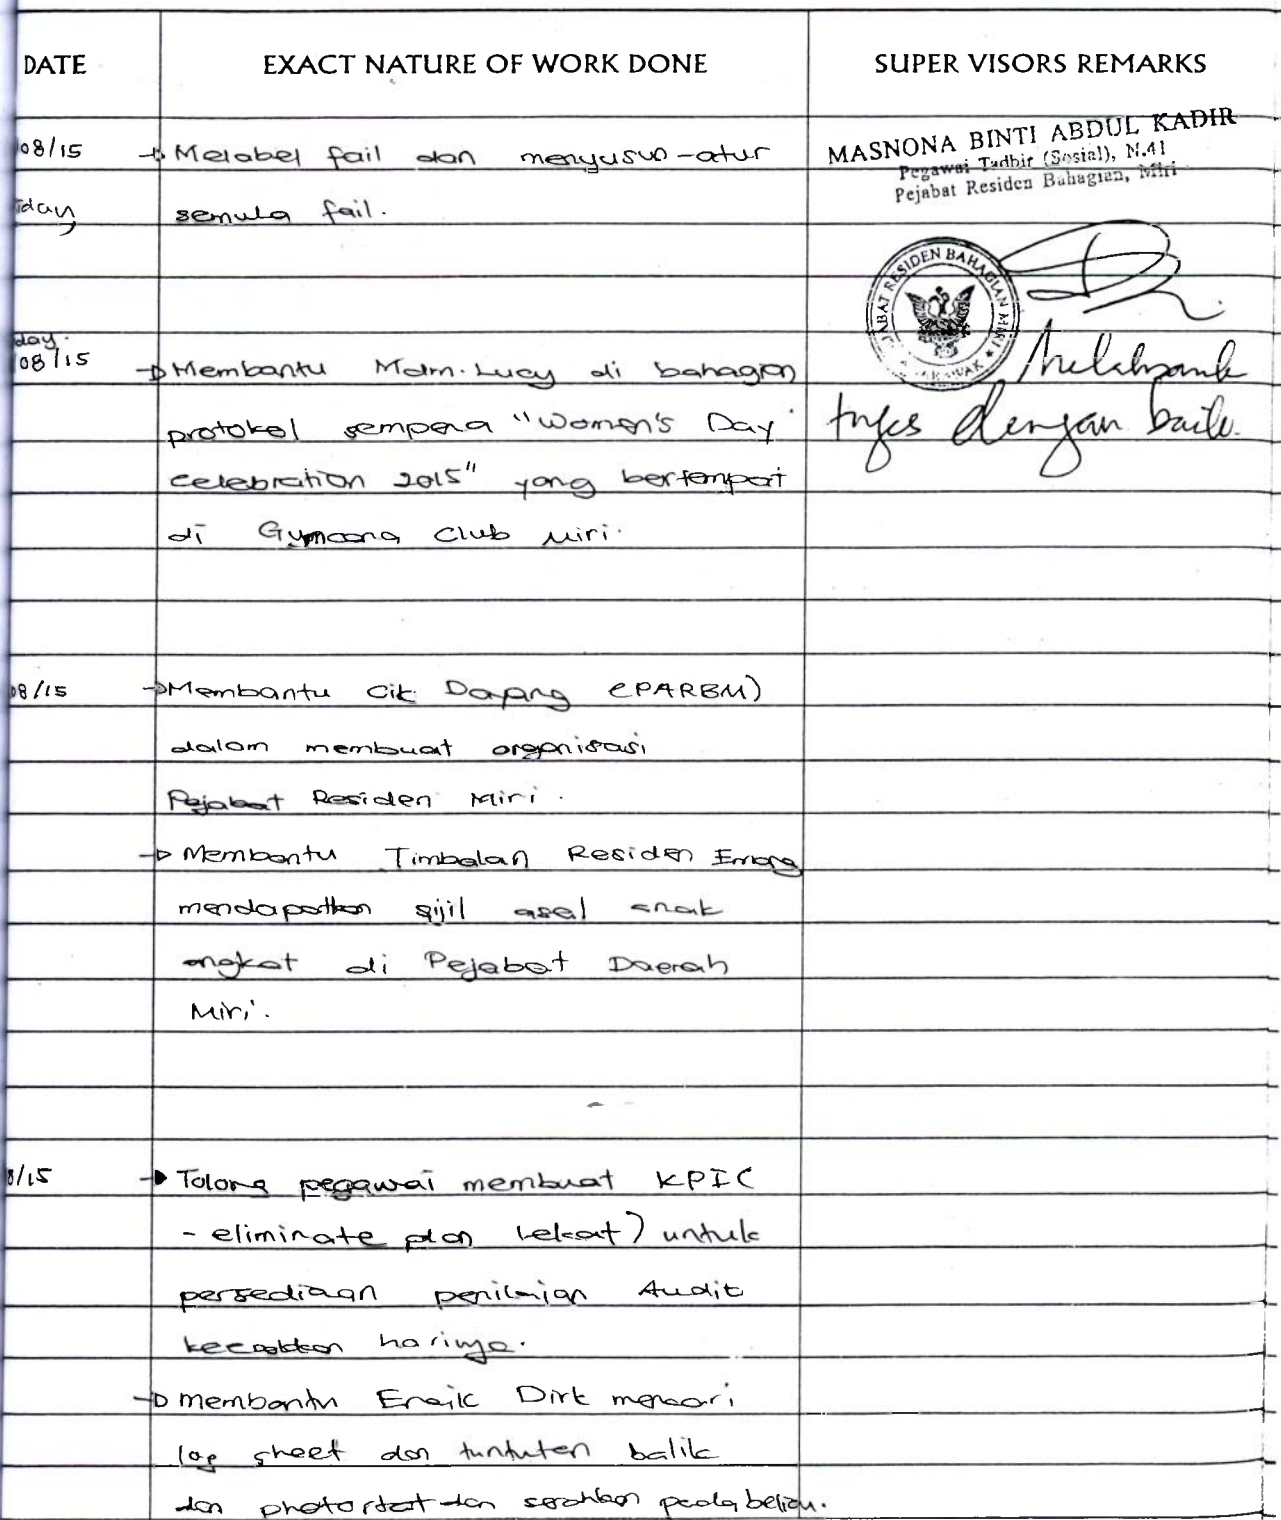 DATE EXACT NATURE OF WORK DONE SUPER VISORS REMARKS
08/15 Melabel fail dan menyusun-atur
semula fail.
MASNONA BINTI ABDUL KADIR
Pegawai Tadbir (Sosial), N.41
Pejabat Residen Bahagian, Miri
JABAT RESIDEN BAHAGIAN MIRI
day.
08/15 Membantu Mdm. Lucy di bahagian
protokol sempena "Women's Day
celebration 2015" yang bertempat
di Gymcana Club Miri.
tugas dengan baik.
08/15 Membantu Cik Dayang (PARBM)
dalam membuat organisasi
Pejabat Residen Miri.
Membantu Timbalan Residen
mendapatkan sijil asal anak
angkat di Pejabat Daerah
Miri.
8/15 Tolong pegawai membuat KPIC
- eliminate plan lekat) untuk
persediaan penilaian Audit
keesokkan harinya.
Membantu Encik Dirk mencari
log sheet dan tuntutan balik
dan photostat dan serahkan pada beliau.